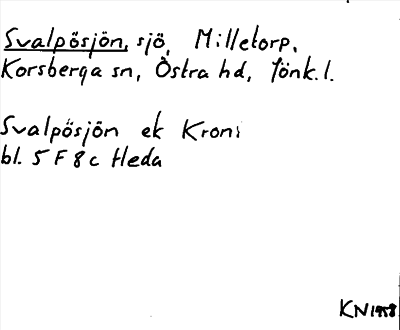 Svalpösjön, sjö, Milletorp,
Korsberga sn, Östra hd, Jönk.l.
Svalpösjön ek Kron:
bl. 5 F 8 c Heda
KN 1958